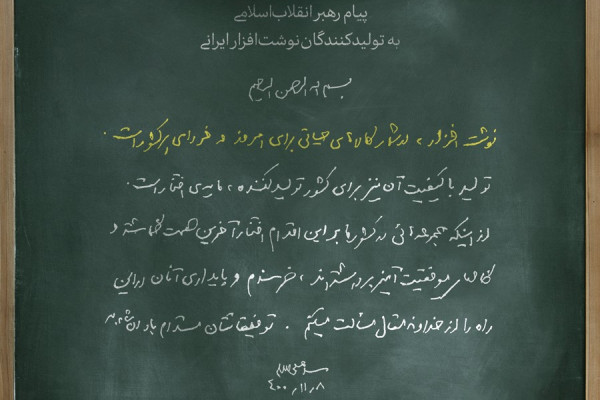 پیام رهبر انقلاب‌اسلامی
به تولیدکنندگان نوشت‌افزار ایرانی
بسم الله الرحمن الرحیم
نوشت افزار، در شمار کالاهای حیاتی برای امروز و فردای هر کشور است.
تولید با کیفیت آن نیز برای کشور تولیدکننده، مایه‌ی افتخار است.
از اینکه مجموعه‌هائی در کشور ما بر این اقدام افتخارآفرین همت گماشته و
گامهای موفقیت آمیز برداشته‌اند، خرسندم و پایداری آنان در این
راه را از خداوند متعال مسألت میکنم. توفیقاتشان مستدام باد ان‌شاءالله
۴۰۰/۱۱/۸